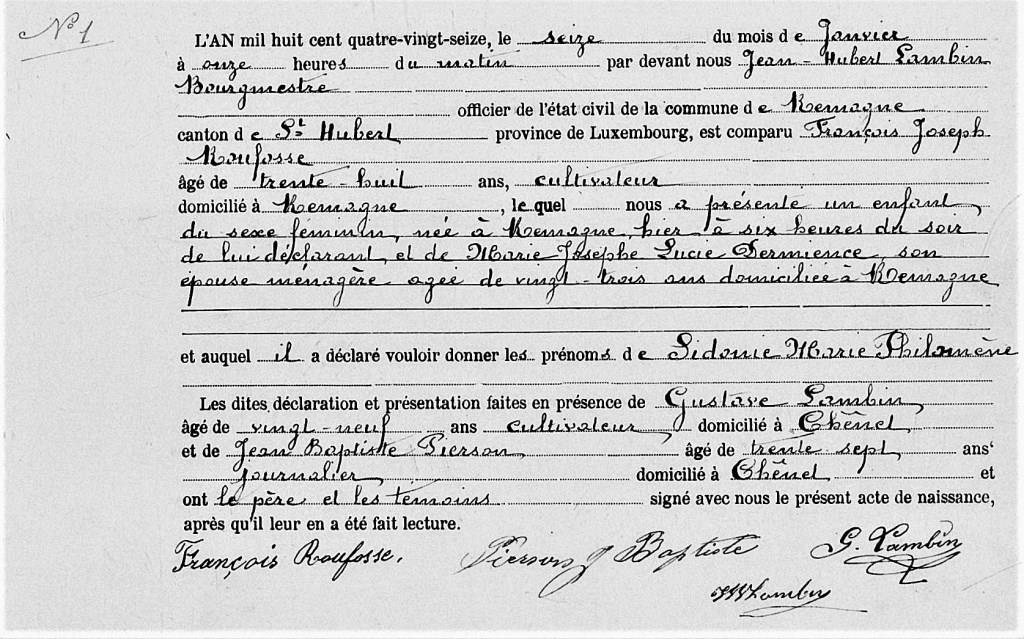 N° 1
L'AN mil huit cent quatre-vingt-seize, le seize du mois de Janvier
à onze heures du matin par devant nous Jean-Hubert Lambin
Bourgmestre
officier de l'état civil de la commune de Remagne
canton de St Hubert province de Luxembourg, est comparu François Joseph
Roufosse
âgé de trente-huit ans, cultivateur
domicilié à Remagne, le quel nous a présenté un enfant
du sexe féminin, née à Remagne, hier à six heures du soir
de lui déclarant et de Marie Josephe Lucie Dermience son
épouse ménagère agée de vingt-trois ans domiciliée à Remagne
et auquel il a déclaré vouloir donner les prénoms de Sidonie Marie Philomène
Les dites déclaration et présentation faites en présence de Gustave Lambin,
âgé de vingt-neuf ans cultivateur, domicilié à Chênet
et de Jean Baptiste Pierson, âgé de trente sept ans
journalier domicilié à Chênet et
ont le père et les témoins signé avec nous le présent acte de naissance,
après qu'il leur en a été fait lecture.
François Roufosse. Pierson J Baptiste G. Lambin
JH Lambin